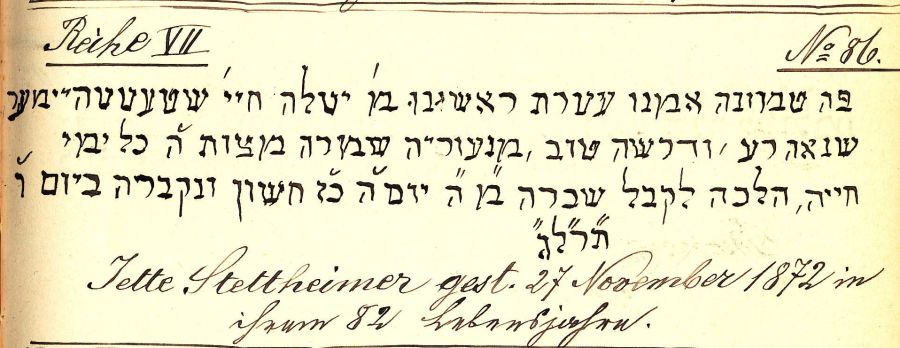 Reihe VII No 86.
פה טמונה אמנו עטרת ראשינו מ' יטלה חיי' שטעטטהיימער
שנאה רע, ודרשה טוב, מנעוריה שמרה מצות ה' כל ימי
חייה, הלכה לקבל שכרה מן ה' יום ה' כ"ז חשון ונקברה ביום ו'
תרל"ג
Jette Stettheimer gest. 27 November 1872 in
ihrem 82 Lebensjahre.